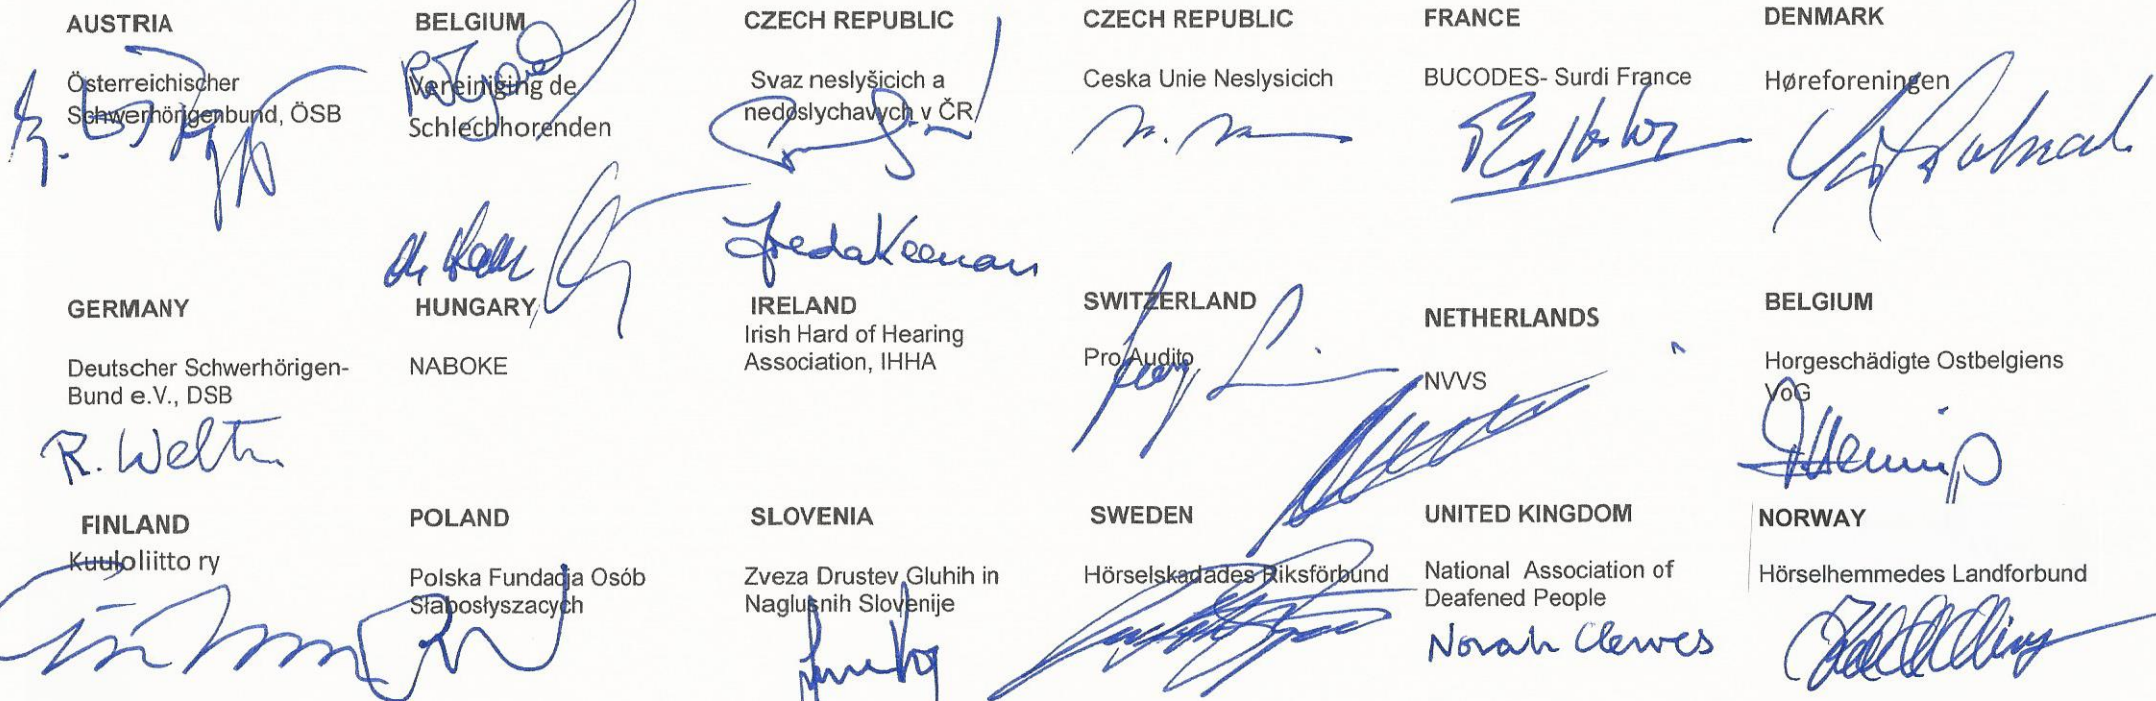 AUSTRIA
Österreichischer
Schwerhörigenbund, ÖSB
BELGIUM
Vereiniging de
Schlechhorenden
CZECH REPUBLIC
Svaz neslyšicich a
nedoslychavych v ČR
CZECH REPUBLIC
Ceska Unie Neslysicich
FRANCE
BUCODES- Surdi France
DENMARK
Høreforeningen
GERMANY
Deutscher Schwerhörigen-
Bund e.V., DSB
R. Welter
HUNGARY
NABOKE
Freda Keenan
IRELAND
Irish Hard of Hearing
Association, IHHA
SWITZERLAND
Pro Audito
NETHERLANDS
NVVS
BELGIUM
Horgeschädigte Ostbelgiens
VoG
FINLAND
Kuuloliitto ry
POLAND
Polska Fundacja Osób
Słabosłyszacych
SLOVENIA
Zveza Drustev Gluhih in
Naglusnih Slovenije
SWEDEN
Hörselskadades Riksförbund
UNITED KINGDOM
National Association of
Deafened People
Norah Clewes
NORWAY
Hörselhemmedes Landforbund